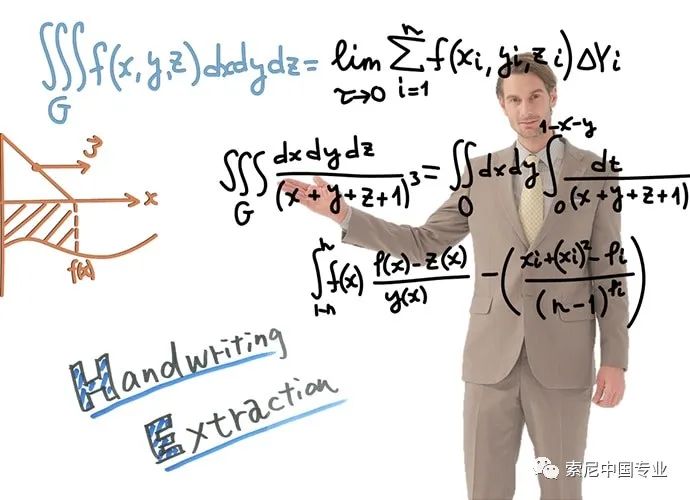 ∭_G f(x,y,z)dxdydz = lim_{τ→0} ∑_{i=1}^{n} f(xi,yi,zi)ΔYi
∭_G dxdydz/(x+y+z+1)^3 = ∬_0 dxdy ∫_0^{1-x-y} dt/(x+y+z+1)
3
x
f(x)
∫_{1-n}^{n} f(x) (f(x)-z(x))/y(x) - ((xi+(xi)^2-fi)/(n-1)^{fi})
Handwriting
Extraction
索尼中国专业